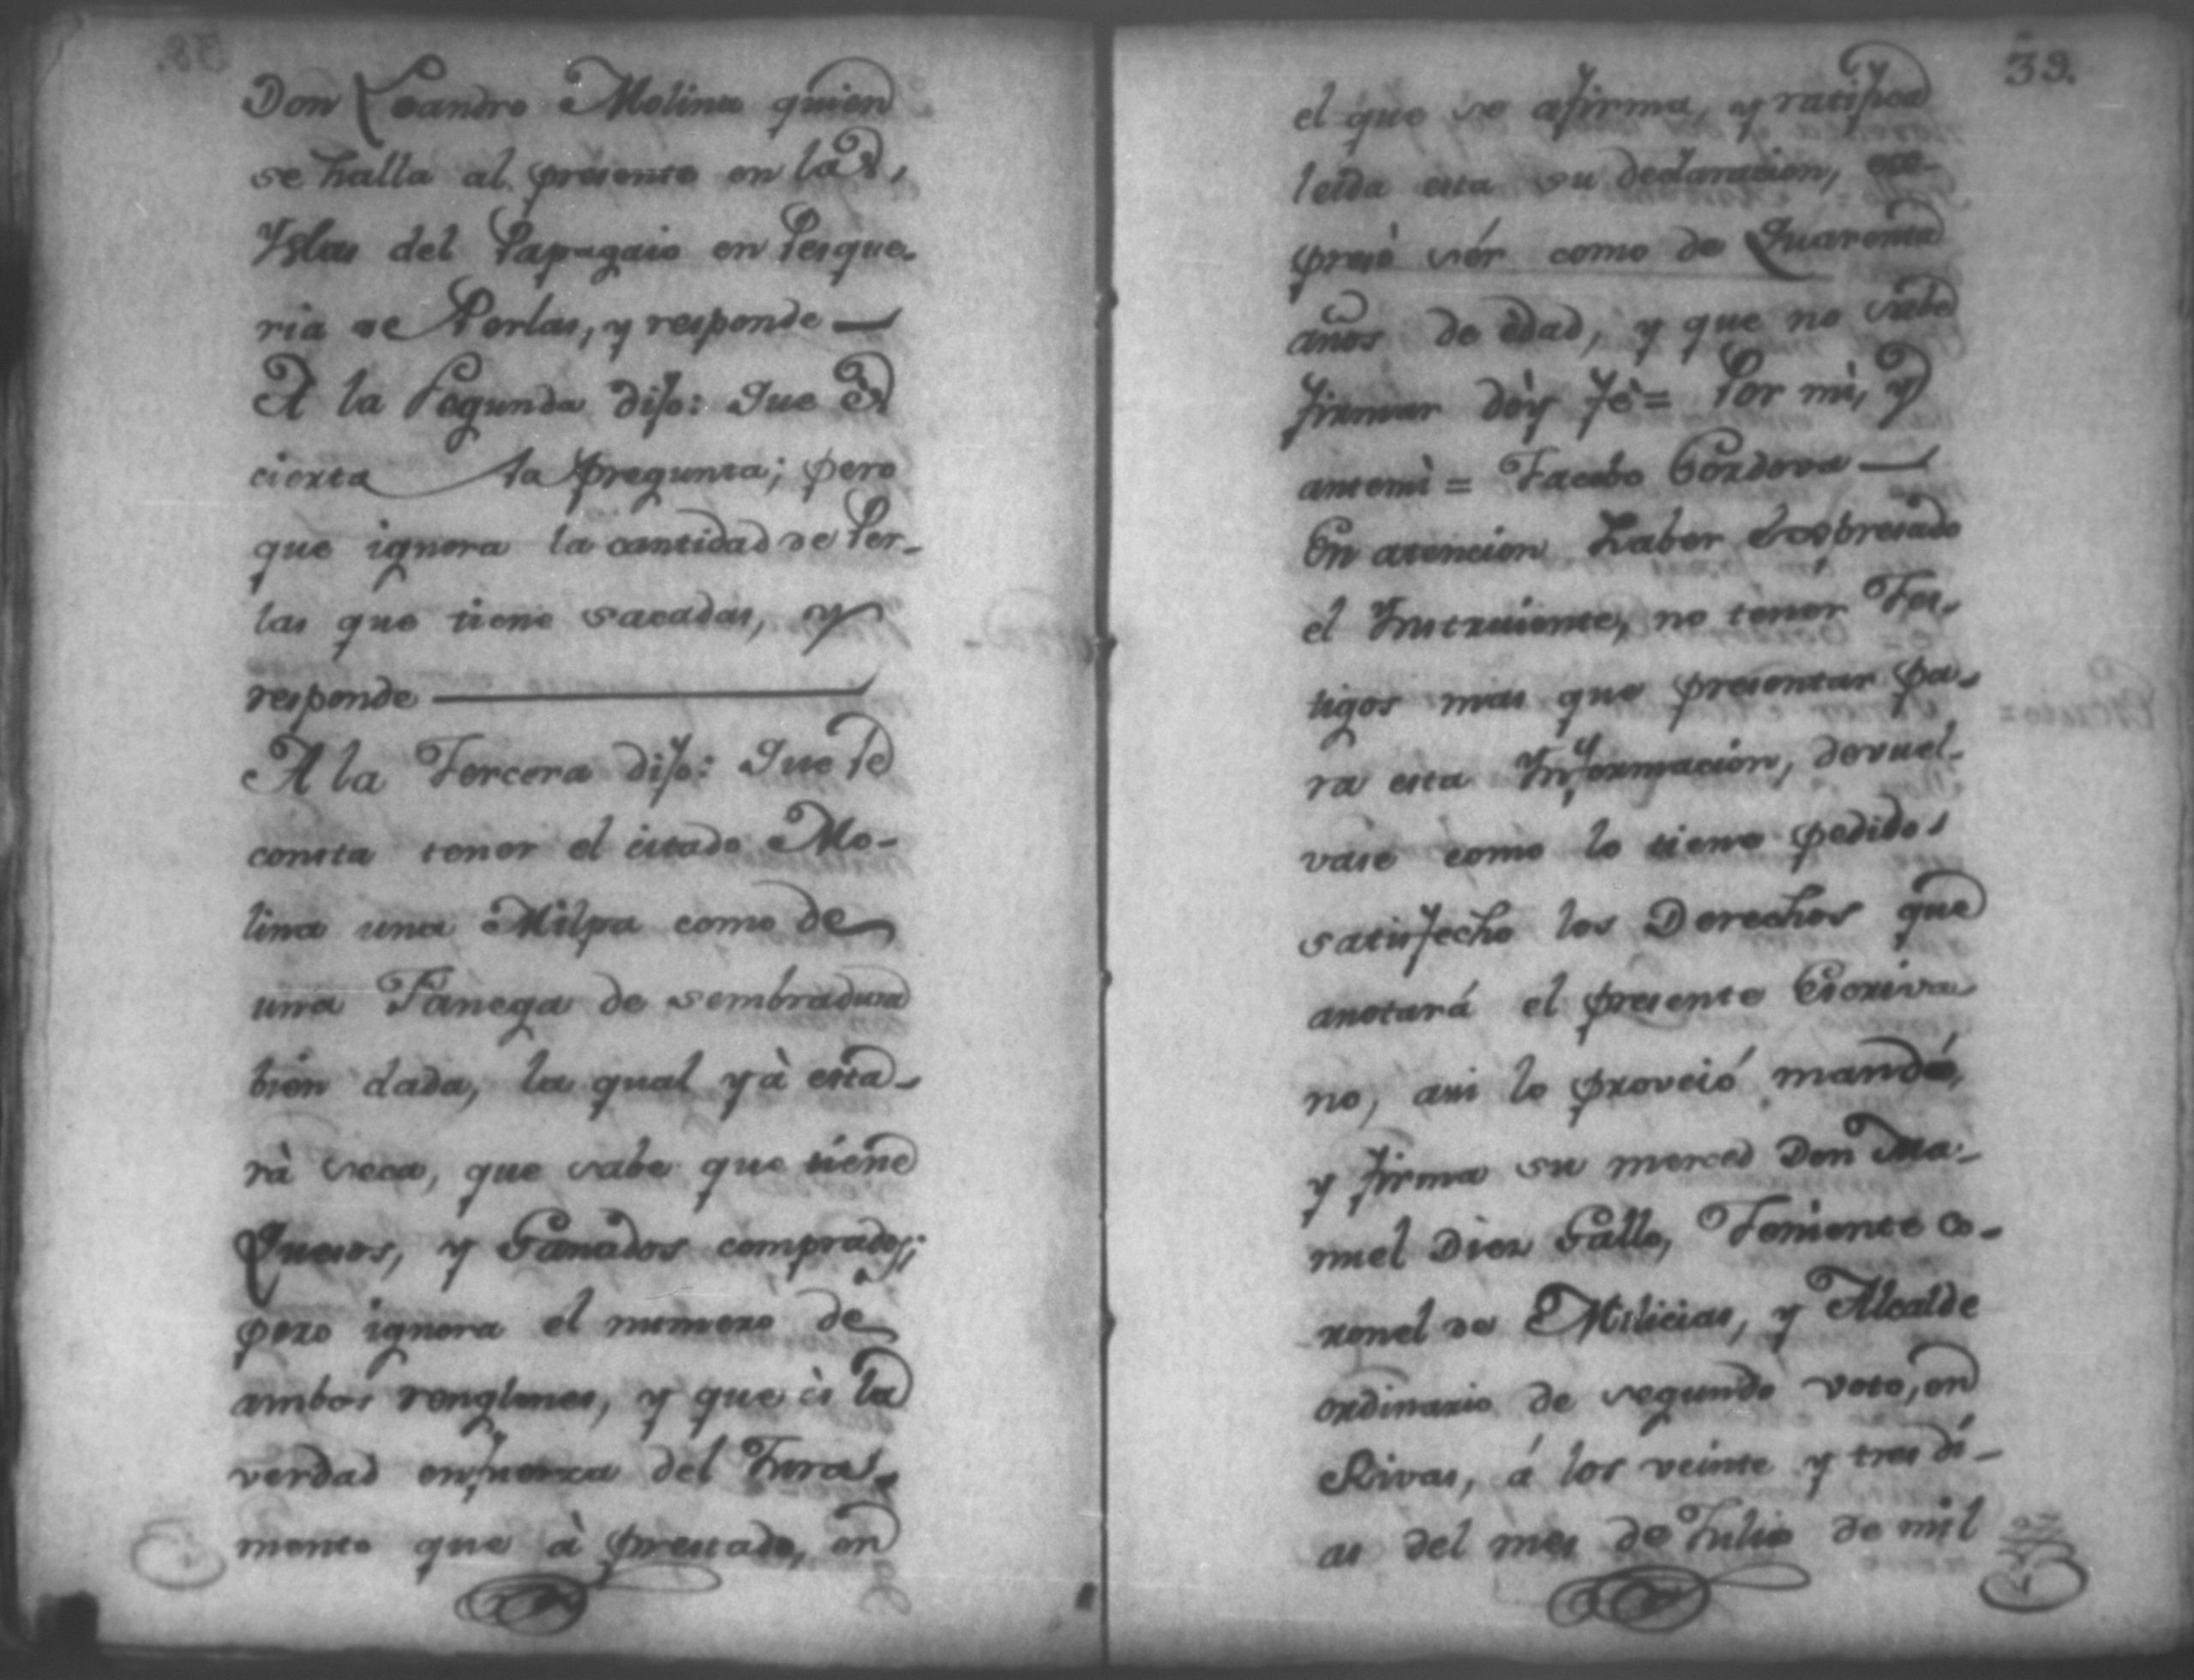 Don Leandro Molina quien
se halla al presente en las,
Yslas del Papagaio en Pesque-
ria de Perlas, y responde —
A la Segunda dijo: Que es
cierta la pregunta; pero
que ignora la cantidad de Per-
las que tiene sacadas, y
responde —
A la Tercera dijo: Que le
consta tener el citado Mo-
lina una Milpa como de
una Fanega de sembradura
bien dada, la qual yà esta-
rà seca, que sabe que tiene
Quesos, y Ganados comprados;
pero ignora el numero de
ambos renglones, y que ès la
verdad en fuerza del Jura-
mento que à prestado, en
39.
el que se afirma, y ratifica
leida esta su declaracion, ex-
presò sér como de Quarenta
años de edad, y que no sabe
firmar dòy fè = Por mi, y
antemì = Jacobo Cordova —
En atencion haber Expresado
el Instruiente, no tenér Tes-
tigos mas que presentar pa-
ra esta Informacion, devuel-
vase como lo tiene pedido
satisfecho los Derechos que
anotará el presente Escriva
no, asi lo proveió mandó,
y firma su merced Don Ma-
nuel Diez Gallo, Teniente Co-
ronel de Milicias, y Alcalde
ordinario de segundo voto, en
Rivas, á los veinte y tres di-
as del mes de Julio de mil